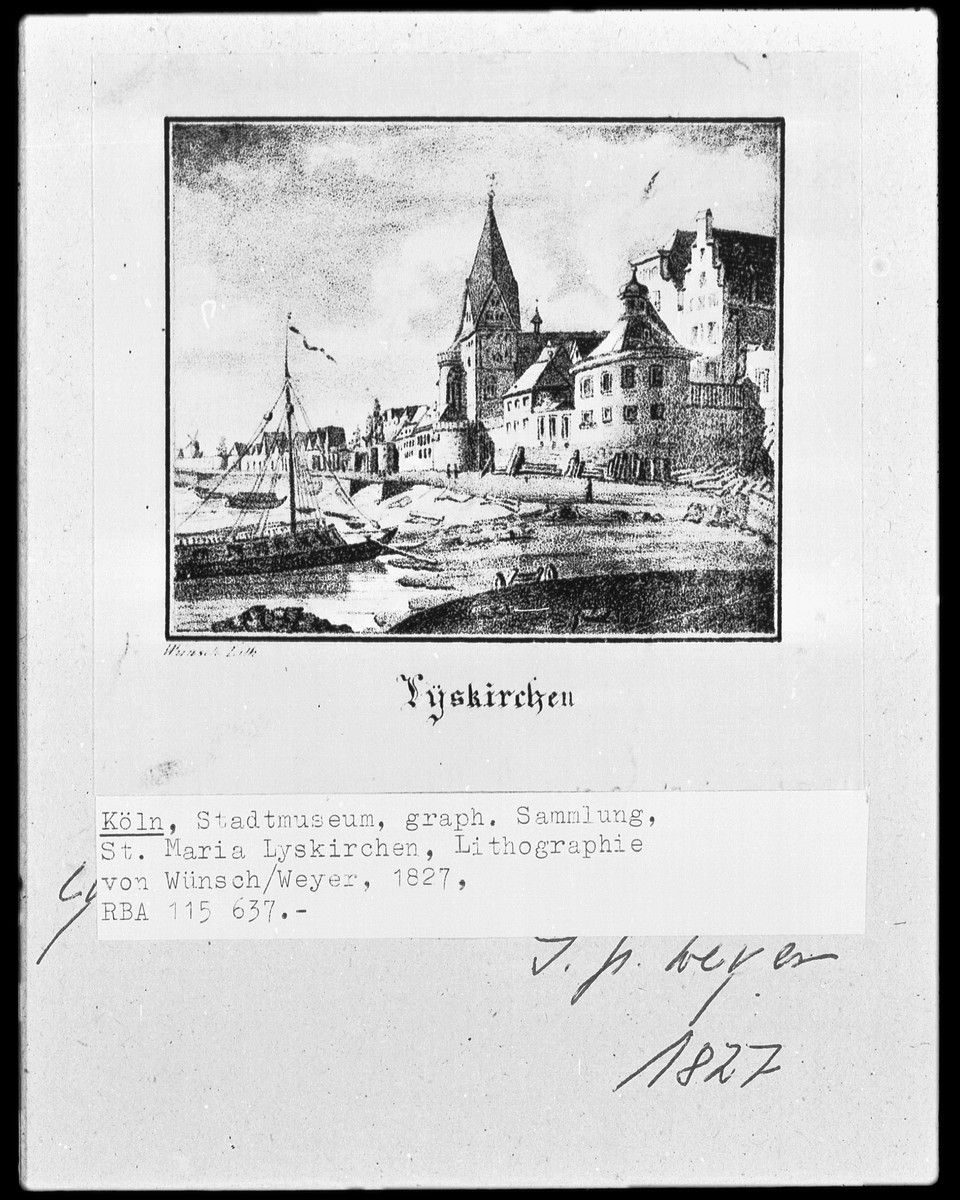 Wünsch Lith.
Lÿskirchen
Köln, Stadtmuseum, graph. Sammlung,
St. Maria Lyskirchen, Lithographie
von Wünsch/Weyer, 1827,
RBA 115 637.-
J. P. Weyer
1827